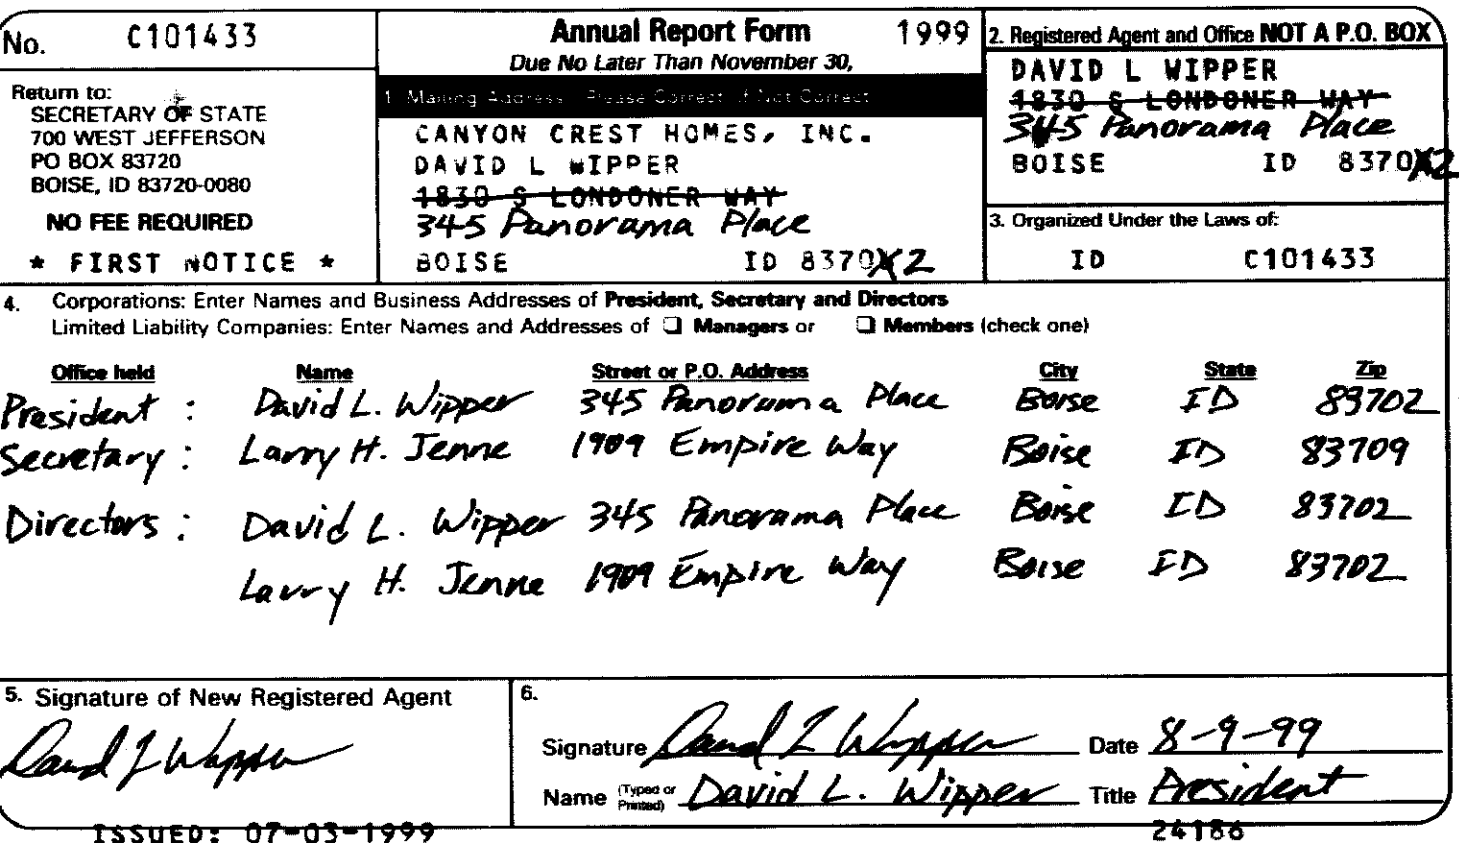 No. C101433
Return to:
SECRETARY OF STATE
700 WEST JEFFERSON
PO BOX 83720
BOISE, ID 83720-0080
NO FEE REQUIRED
* FIRST NOTICE *
Annual Report Form 1999
Due No Later Than November 30,
1. Mailing Address Please Correct If Not Correct
CANYON CREST HOMES, INC.
DAVID L WIPPER
1830 S LONDONER WAY
345 Panorama Place
BOISE ID 8370X2
2. Registered Agent and Office NOT A P.O. BOX
DAVID L WIPPER
1830 S LONDONER WAY
345 Panorama Place
BOISE ID 8370X2
3. Organized Under the Laws of:
ID C101433
4. Corporations: Enter Names and Business Addresses of President, Secretary and Directors
Limited Liability Companies: Enter Names and Addresses of ❑ Managers or ❑ Members (check one)
Office held Name Street or P.O. Address City State Zip
President : David L. Wipper 345 Panorama Place Boise ID 83702
Secretary : Larry H. Jenne 1909 Empire Way Boise ID 83709
Directors : David L. Wipper 345 Panorama Place Boise ID 83702
Larry H. Jenne 1909 Empire Way Boise ID 83702
5. Signature of New Registered Agent
David L Wipper
6.
Signature David L Wipper Date 8-9-99
Name (Typed or Printed) David L. Wipper Title President
ISSUED: 07-03-1999
24186